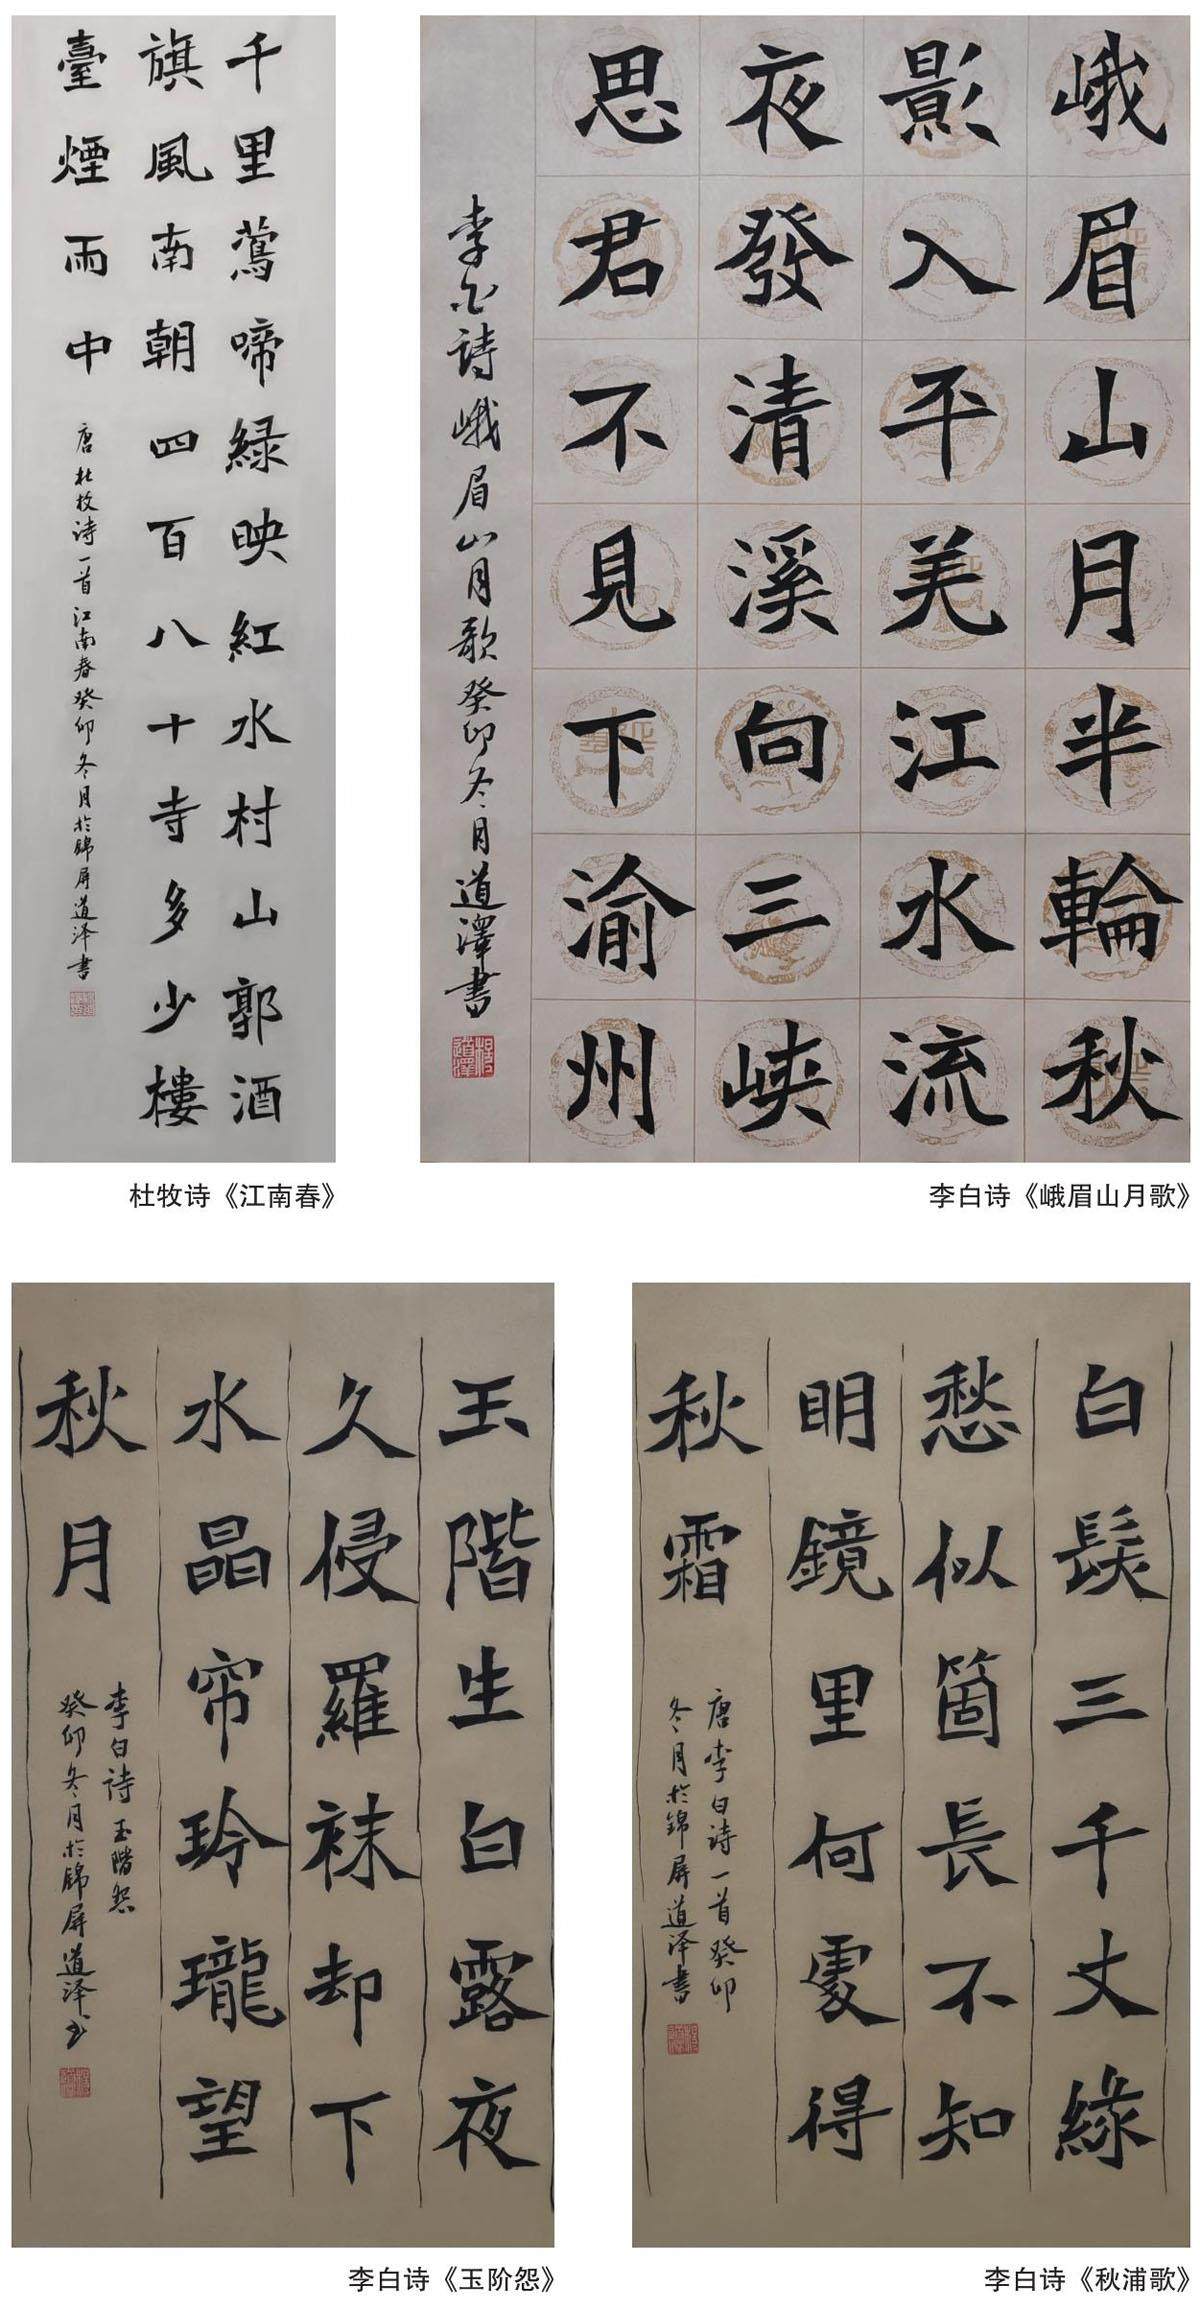 千里鶯啼緑映紅水村山郭酒
旗風南朝四百八十寺多少樓
臺煙雨中
唐杜牧诗一首江南春癸卯冬月於錦屏道泽書
杜牧诗《江南春》
峨眉山月半輪秋
影入平羌江水流
夜發清溪向三峡
思君不見下渝州
李白诗峨眉山月歌癸卯冬月道澤書
李白诗《峨眉山月歌》
玉階生白露夜
久侵羅袜却下
水晶帘玲瓏望
秋月
李白诗玉階怨
癸卯冬月於錦屏道泽书
李白诗《玉阶怨》
白髮三千丈緣
愁似箇長不知
明鏡里何處得
秋霜
唐李白诗一首癸卯
冬月於錦屏道泽書
李白诗《秋浦歌》